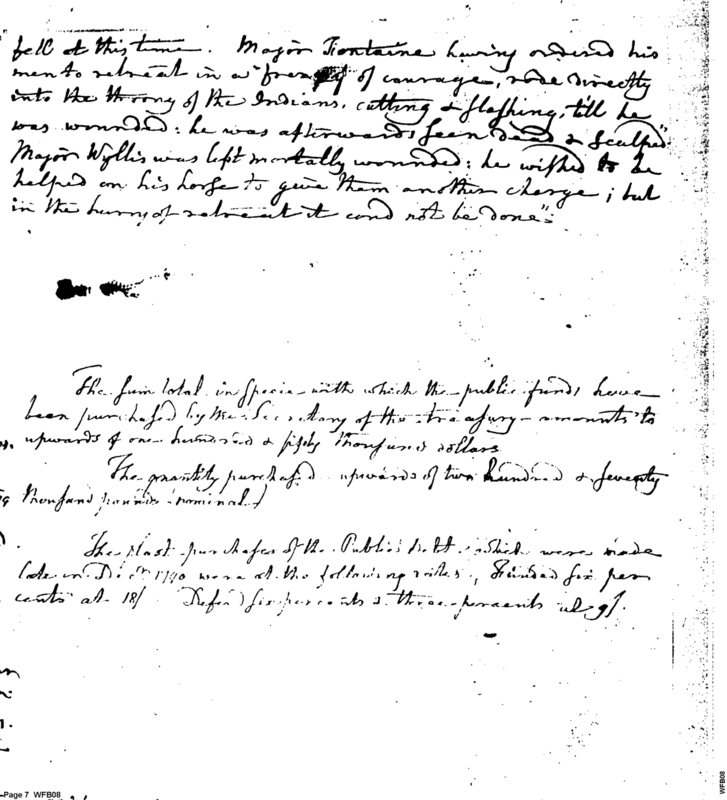 fell at this time. Major Fontaine having ordered his
men to retreat in a "frenzy of courage, rode directly
into the throng of the Indians, cutting & slashing, till he
was wounded: he was afterwards seen dead & sculped"
Major Wyllis was left mortally wounded: he wished to be
helped on his horse to give them another charge; but
in the hurry of retreat it coud not be done":
The sum total in specie with which the public funds have
been purchased by the Secretary of the treasury amounts to
upwards of one hundred & fifty thousand dollars
The quantity purchased upwards of two hundred & seventy
thousand pounds nominal
The last purchases of the Public debt which were made
late in Decr 1790 were at the following rates, Funded six per
cents at 18/ Deferd six per cents & three per cents at 9/.
Page 7 WFB08
WFB08